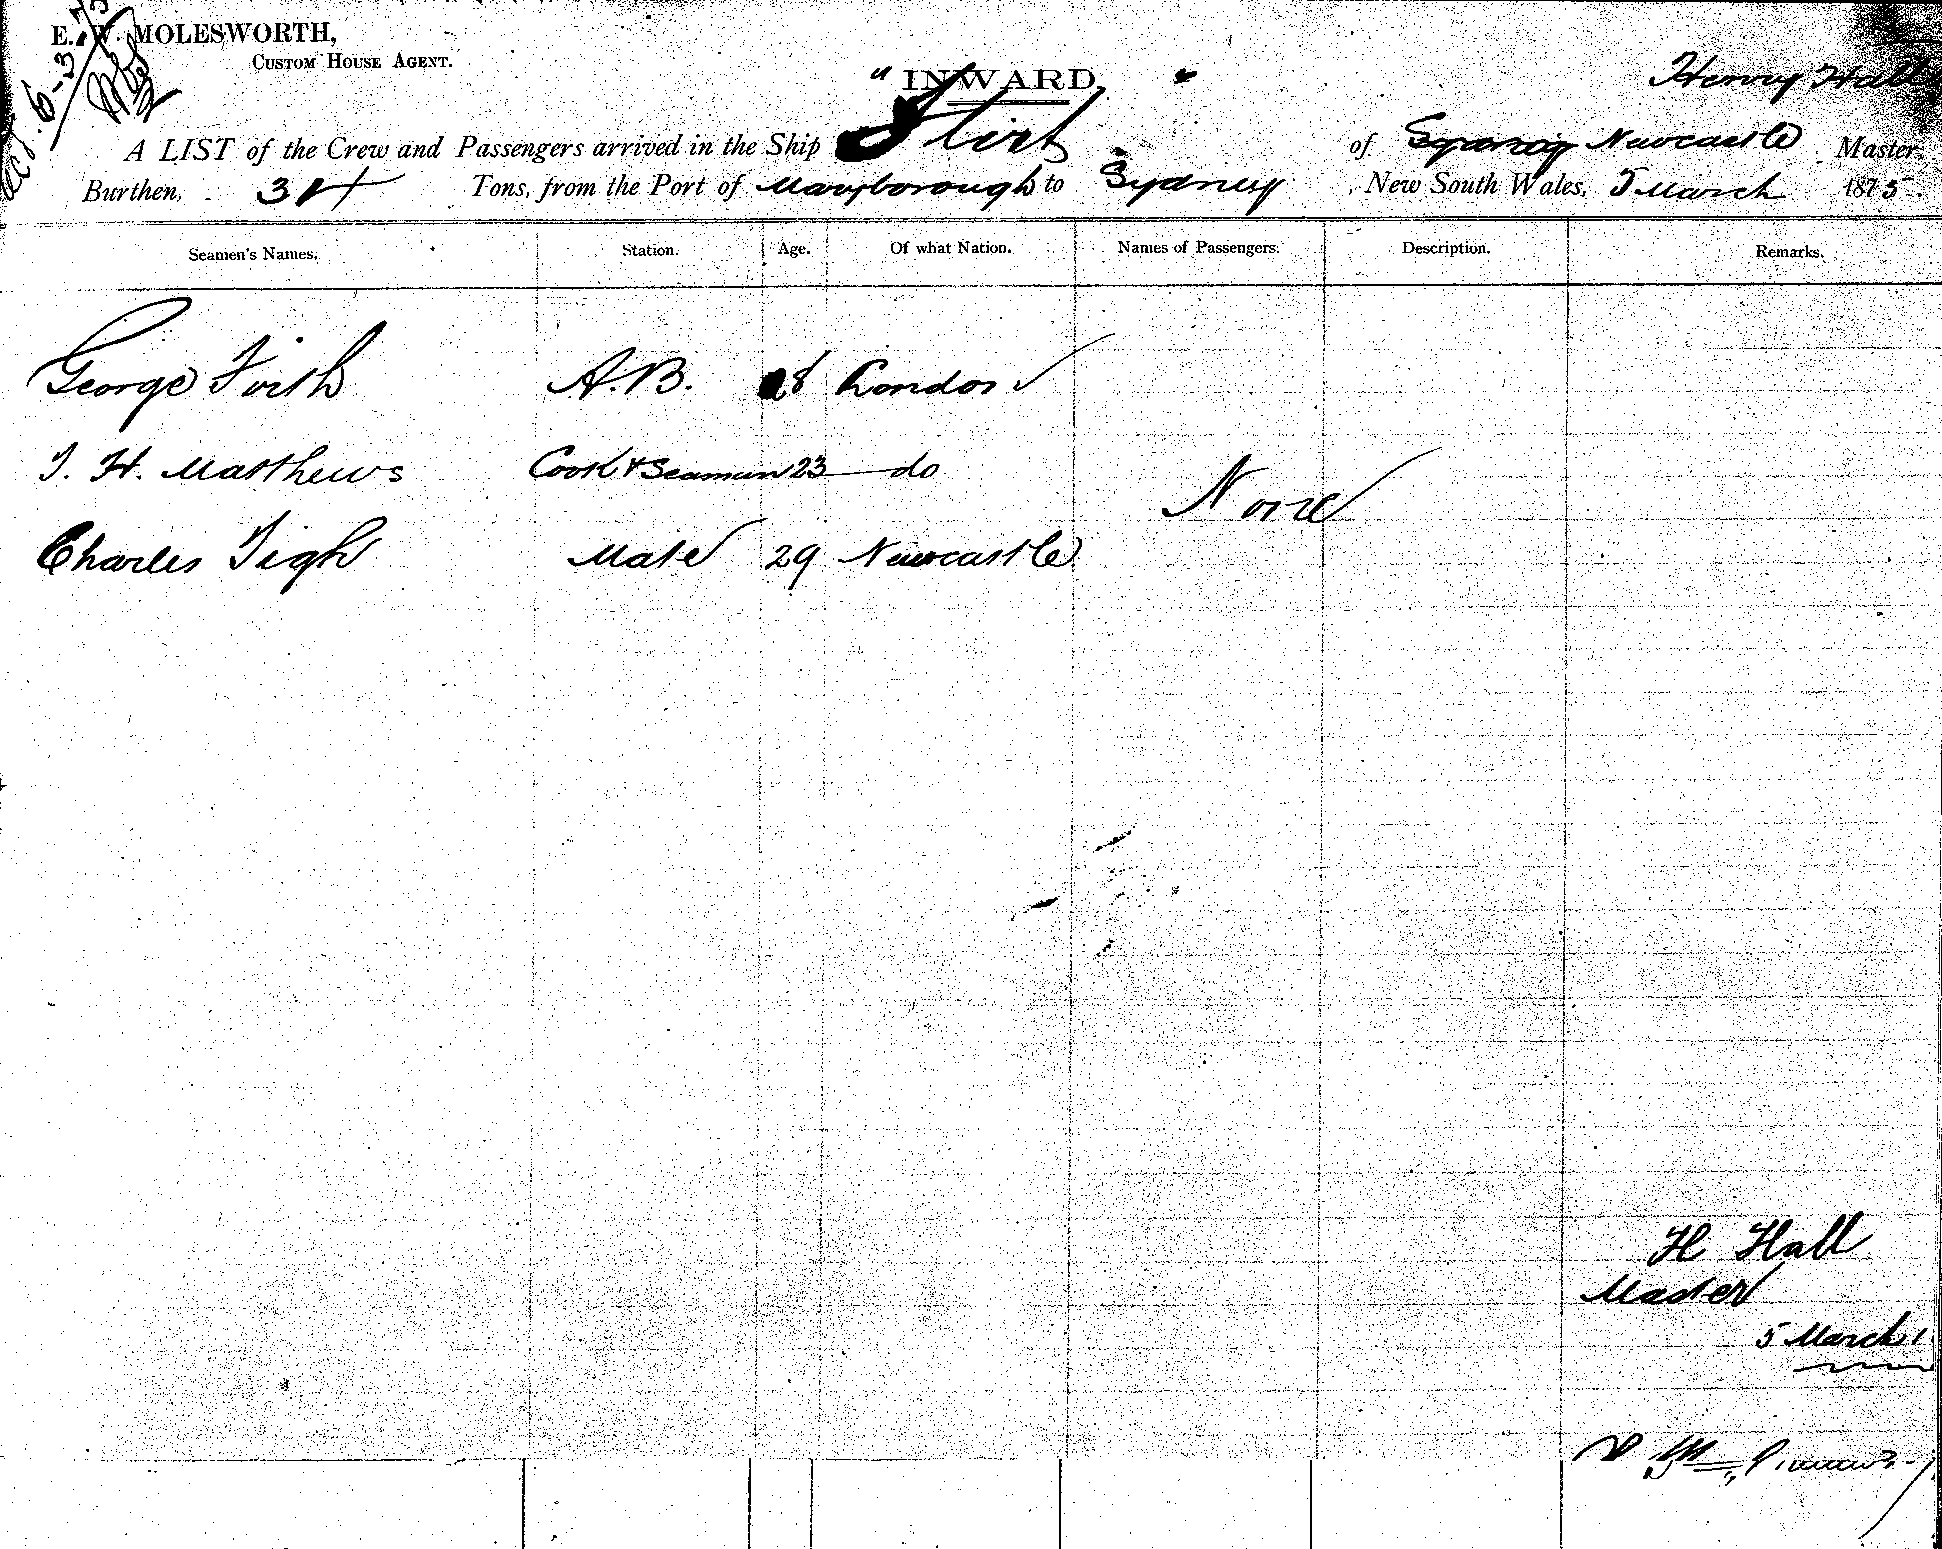 E. W. MOLESWORTH,
CUSTOM HOUSE AGENT.
6-3-75
" INWARD. "
Henry Hall
A LIST of the Crew and Passengers arrived in the Ship Flirt of Newcastle Master,
Burthen, Tons, from the Port of Maryborough to Sydney, New South Wales, 5 March 1875
Seamen's Names. Station. Age. Of what Nation. Names of Passengers. Description. Remarks.
George Firth A.B. 28 London
T. H. Matthews Cook & Seaman 23 do
None
Charles Tigh Mate 29 Newcastle
H Hall
Master
5 March